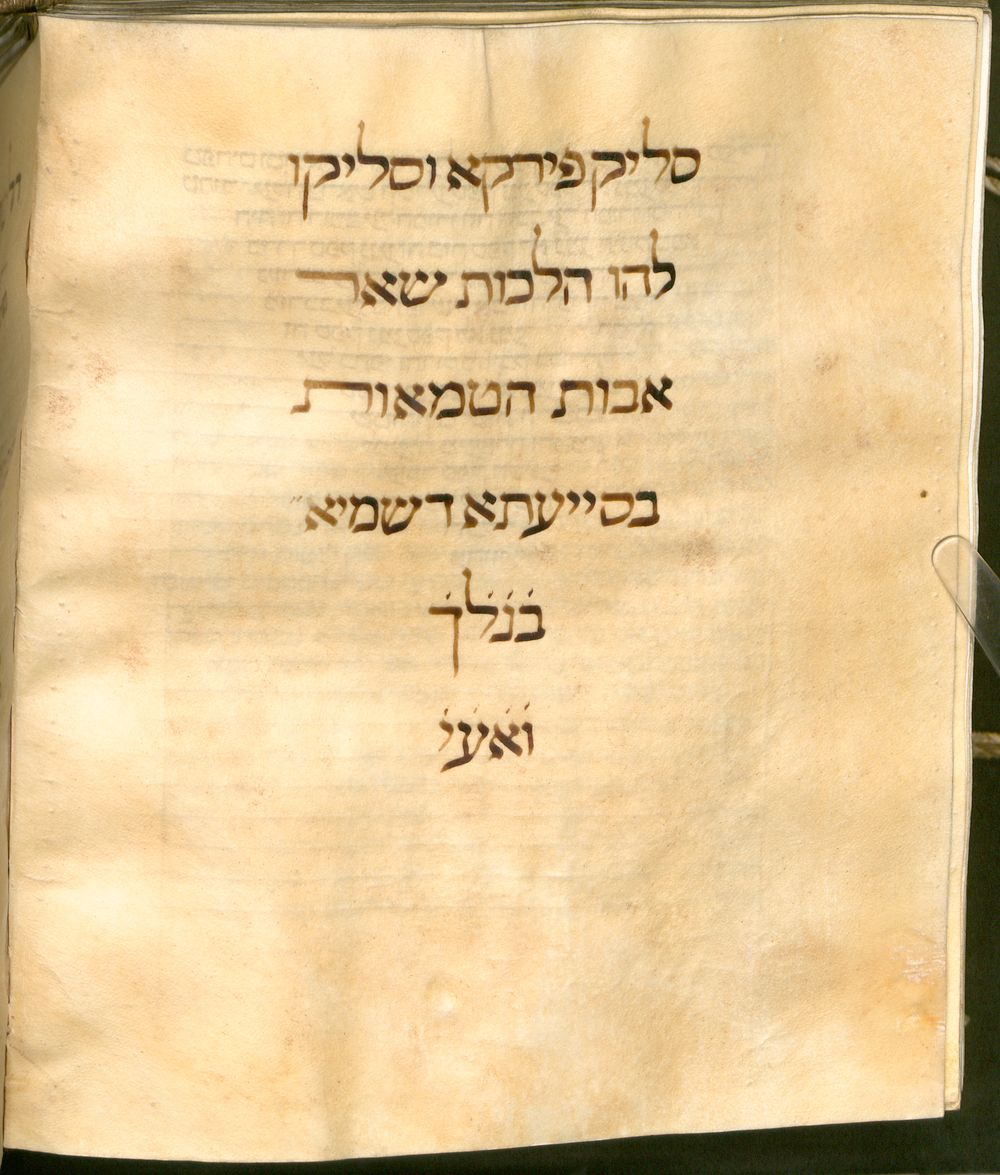 סליק פירקא וסליקו
להו הלכות שאר
אבות הטמאות
בסייעתא דשמיא
בׄנׄלׄךׄ
וׄאׄעׄיׄ